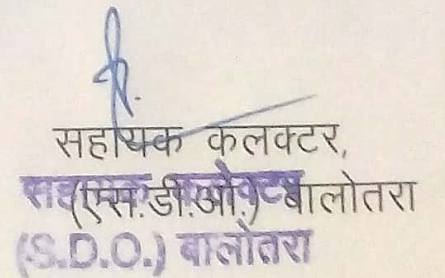 सहायक कलक्टर,
(एस.डी.ओ.) बालोतरा
(S.D.O.) बालोतरा